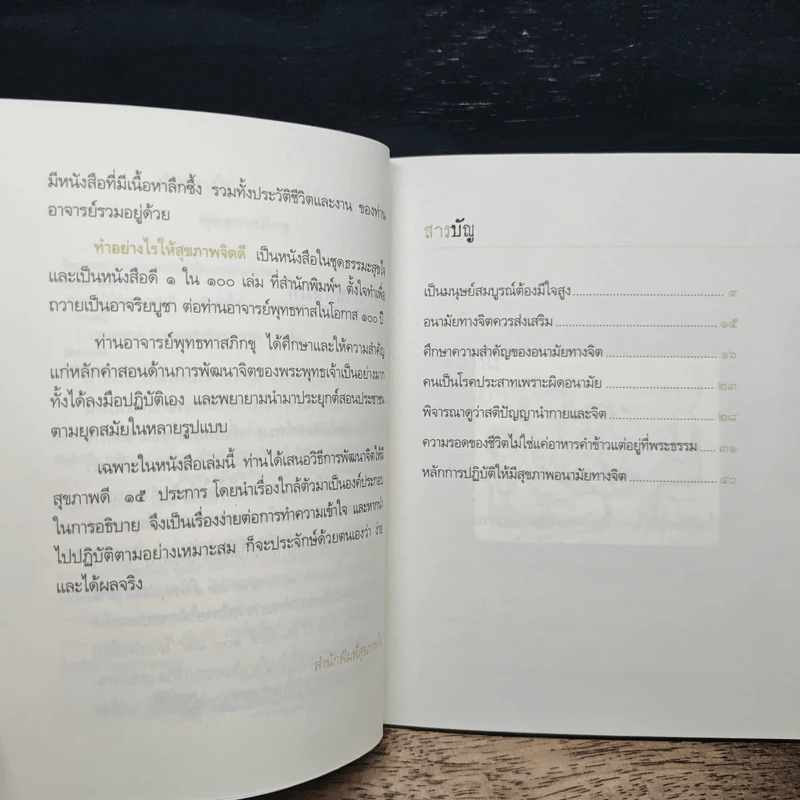 มีหนังสือที่มีเนื้อหาลึกซึ้ง รวมทั้งประวัติชีวิตและงาน ของท่าน
อาจารย์รวมอยู่ด้วย
ทำอย่างไรให้สุขภาพจิตดี เป็นหนังสือในชุดธรรมะสุขใจ
และเป็นหนังสือดี ๑ ใน ๑๐๐ เล่ม ที่สำนักพิมพ์ฯ ตั้งใจทำเพื่อ
ถวายเป็นอาจริยบูชา ต่อท่านอาจารย์พุทธทาสในโอกาส ๑๐๐ ปี
ท่านอาจารย์พุทธทาสภิกขุ ได้ศึกษาและให้ความสำคัญ
แก่หลักคำสอนด้านการพัฒนาจิตของพระพุทธเจ้าเป็นอย่างมาก
ทั้งได้ลงมือปฏิบัติเอง และพยายามนำมาประยุกต์สอนประชาชน
ตามยุคสมัยในหลายรูปแบบ
เฉพาะในหนังสือเล่มนี้ ท่านได้เสนอวิธีการพัฒนาจิตให้มี
สุขภาพดี ๑๕ ประการ โดยนำเรื่องใกล้ตัวมาเป็นองค์ประกอบ
ในการอธิบาย จึงเป็นเรื่องง่ายต่อการทำความเข้าใจ และหากนำ
ไปปฏิบัติตามอย่างเหมาะสม ก็จะประจักษ์ด้วยตนเองว่า ง่าย
และได้ผลจริง
สำนักพิมพ์สุขภาพใจ
สารบัญ
เป็นมนุษย์สมบูรณ์ต้องมีใจสูง ๙
อนามัยทางจิตควรส่งเสริม ๑๕
ศึกษาความสำคัญของอนามัยทางจิต ๑๖
คนเป็นโรคประสาทเพราะผิดอนามัย ๒๓
พิจารณาดูว่าสติปัญญานำกายและจิต ๒๘
ความรอดของชีวิตไม่ใช่แค่อาหารคำข้าวแต่อยู่ที่พระธรรม ๓๑
หลักการปฏิบัติให้มีสุขภาพอนามัยทางจิต ๔๐